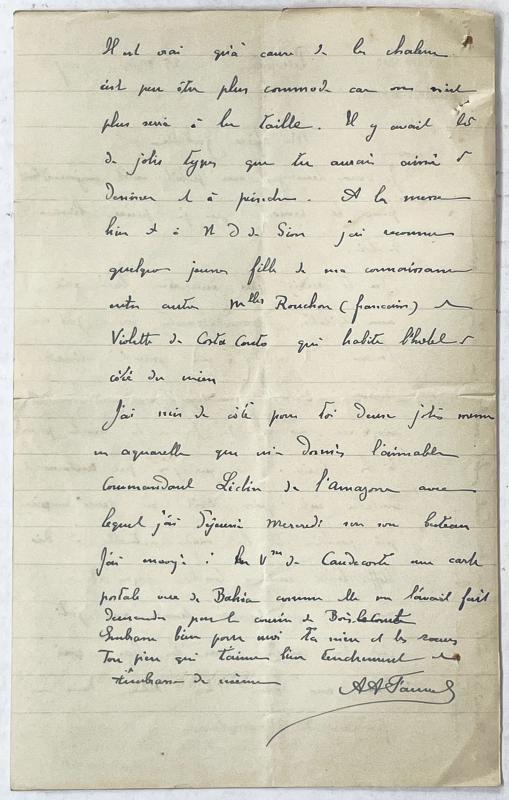 Il est vrai qu'à cause de la chaleur
c'est peu être plus commode car on n'est
plus serré à la taille. Il y avait
de jolis types que tu aurais aimé à
dessiner et à peindre. A la messe
hier à N D de Sion j'ai reconnu
quelques jeunes filles de ma connaissance
entre autre Mlles Rouchon (françaises) et
Violette da Costa Couto qui habite l'hotel à
côté du mien
J'ai mis de côté pour toi deux jolis menu
en aquarelle que m'a donnés l'aimable
Commandant de l'Amazone avec
lequel j'ai déjeuné Mercredi sur son bateau
J'ai envoyé à Vm de Caudecoste une carte
postale vue de Bahia comme elle me l'avait fait
demander par le cousin de Bois.lecomte
Embrasse bien pour moi ta mère et les soeurs
Ton père qui t'aime bien tendrement et
t'embrasse de même